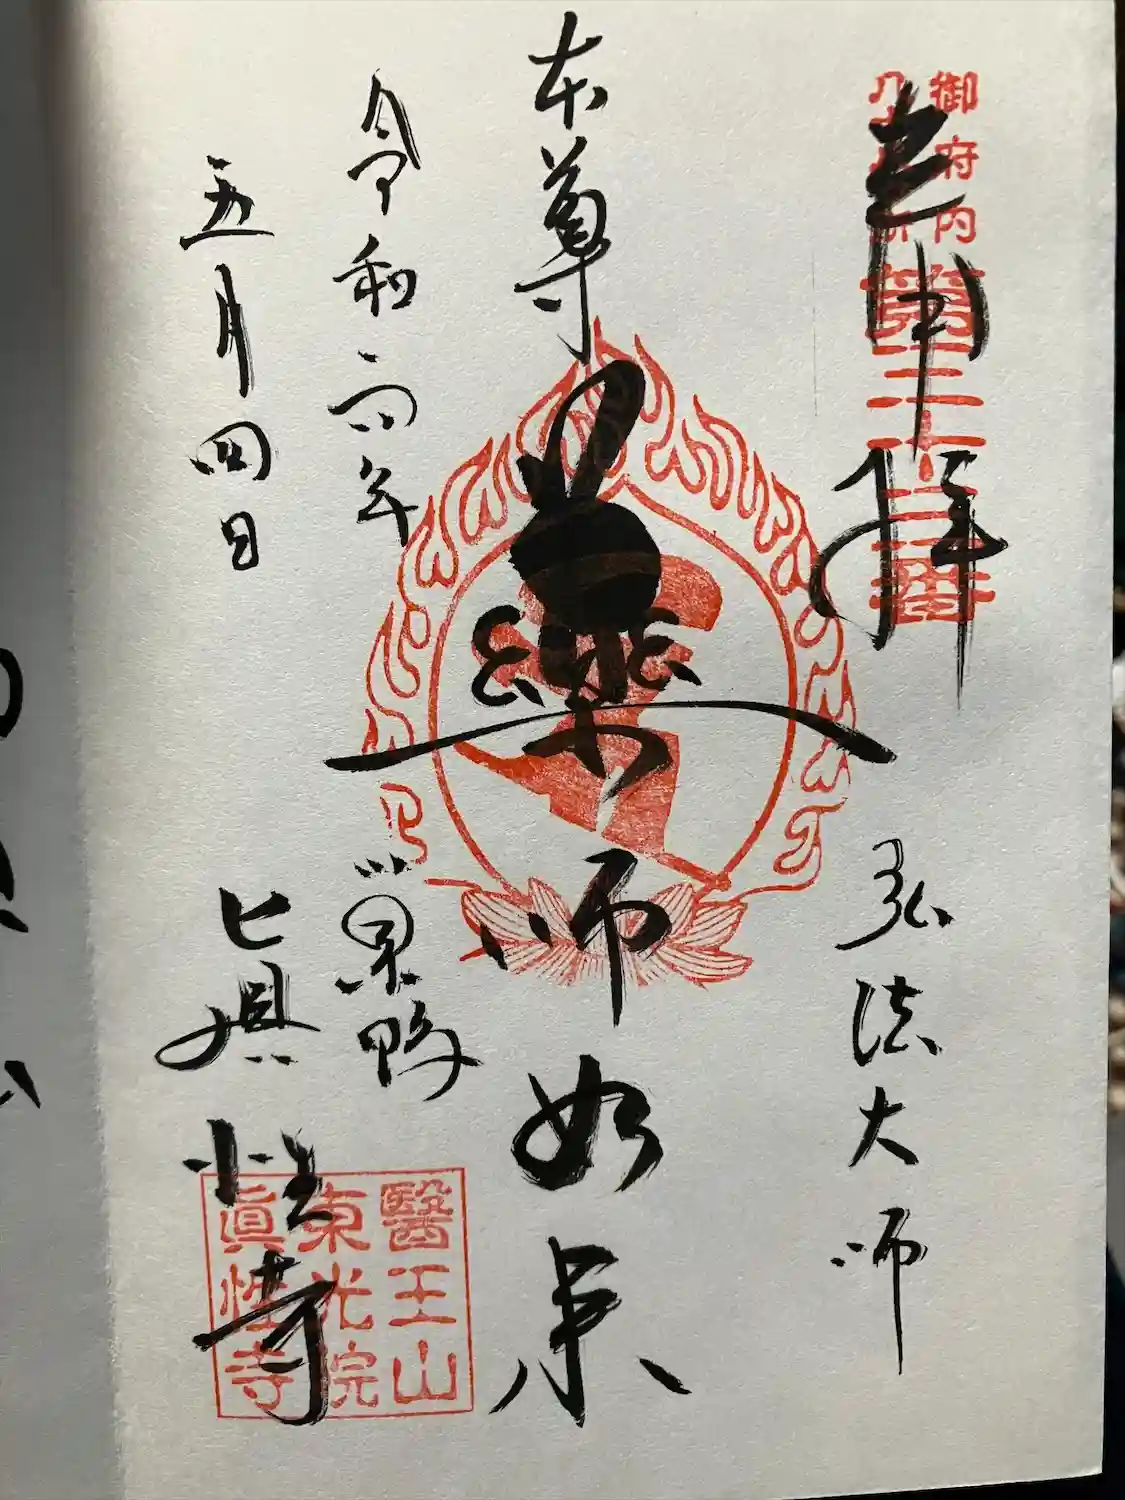 奉拝
御府内
八十八ヶ所
第三十三番
弘法大師
本尊
薬師如来
令和六年
五月四日
巣鴨
眞性寺
醫王山
東光院
眞性寺